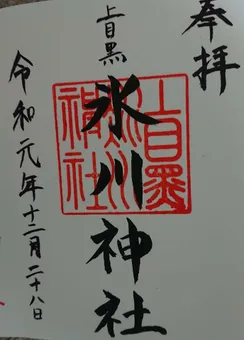 奉拝
上目黒
氷川神社
上目黒
氷川
神社
令和元年十二月二十八日